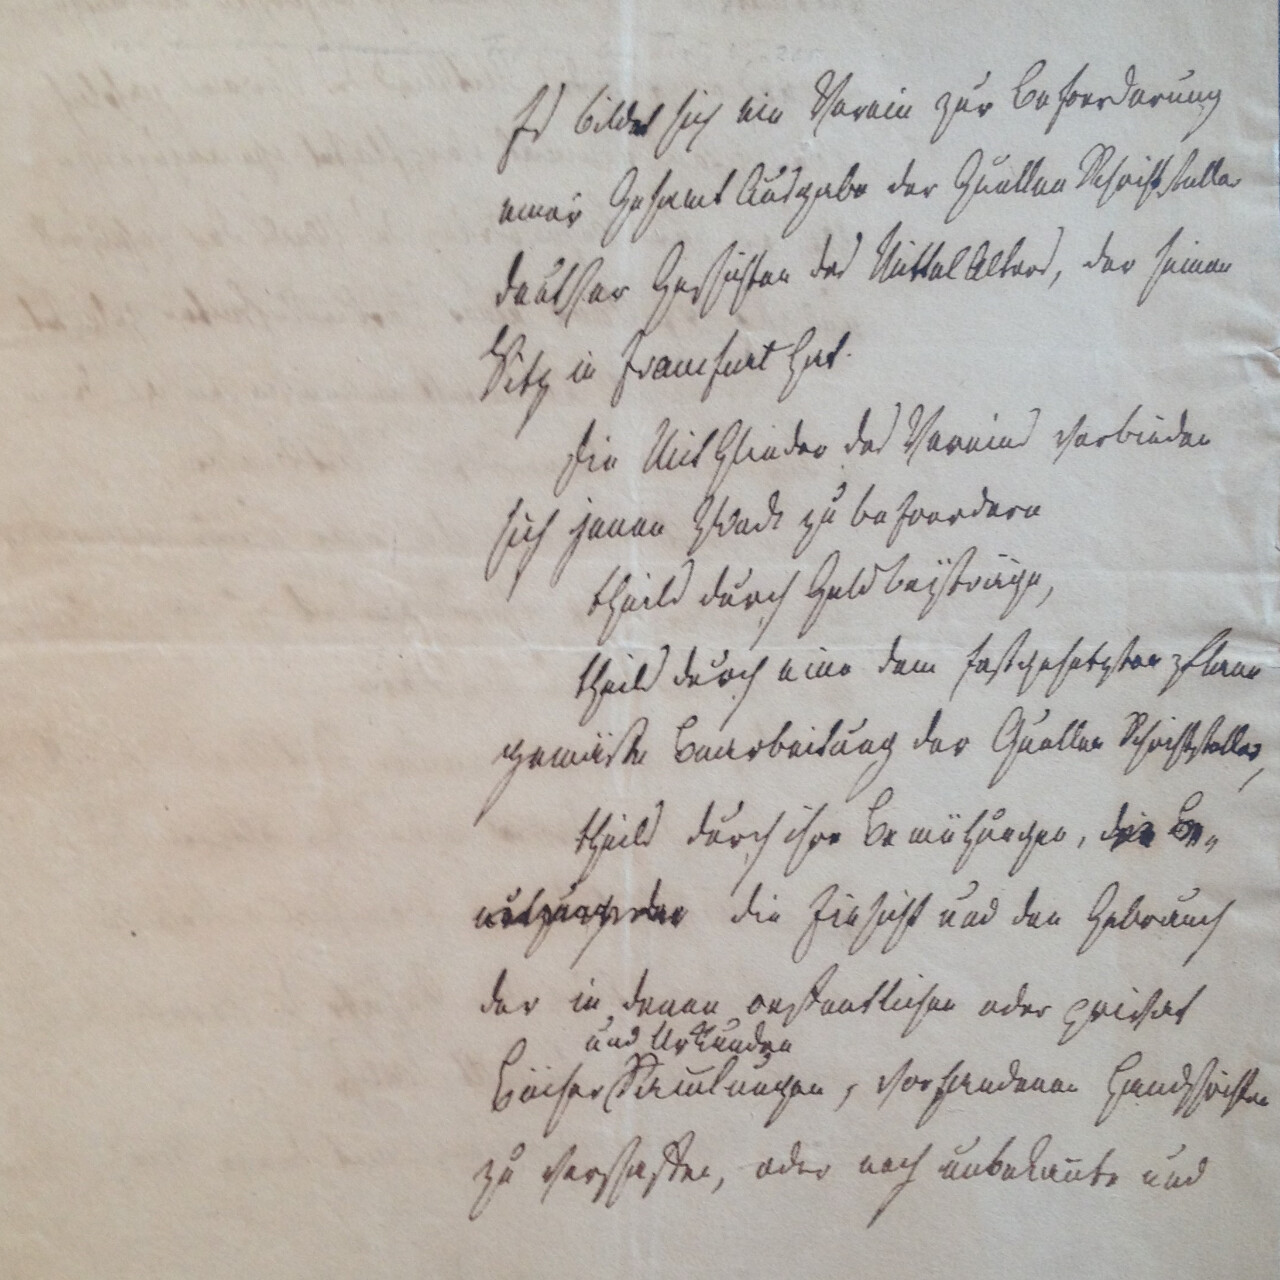 Es bildet sich ein Verein zur Befoerderung
einer Gesamt Ausgabe der Quellen Schriftsteller
deutscher Geschichten des Mittel Alters, der seinen
Sitz in Franckfurt hat.
Die Mit Glieder des Vereins verbinden
sich jenen Zweck zu befoerdern
theils durch Geld beyträge,
theils durch eine dem festgesetzten Plane
gemäße Bearbeitung der Quellen Schriftsteller,
theils durch ihre Bemühungen, die Be-
nutzung der die Einsicht und den Gebrauch
der in denen oeffentlichen oder privat
und Urkunden
Bücher Sammlungen, vorhandenen Handschriften
zu verschaffen, oder noch unbekannte und